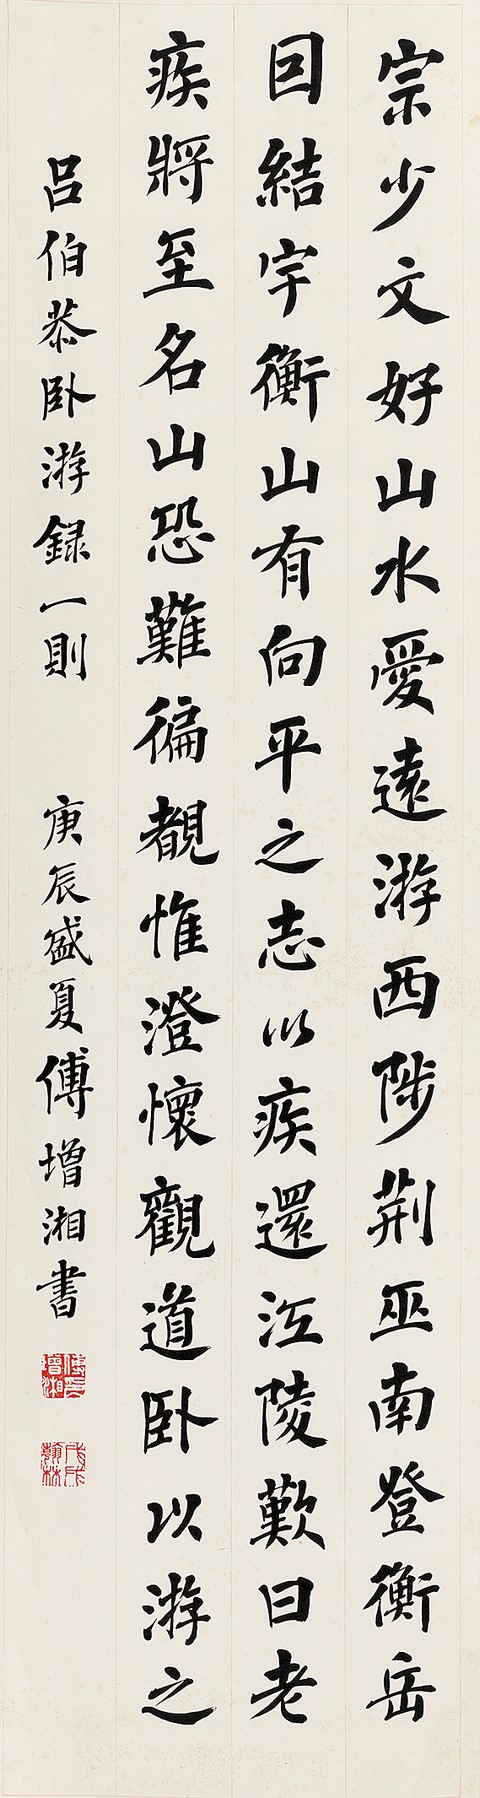 宗少文好山水愛遠游西陟荊巫南登衡岳
因結宇衡山有向平之志以疾還江陵歎曰老
疾將至名山恐難徧覩惟澄懷觀道臥以游之
呂伯恭臥游録一則 庚辰盛夏傅增湘書
傅增湘印
戊戌翰林